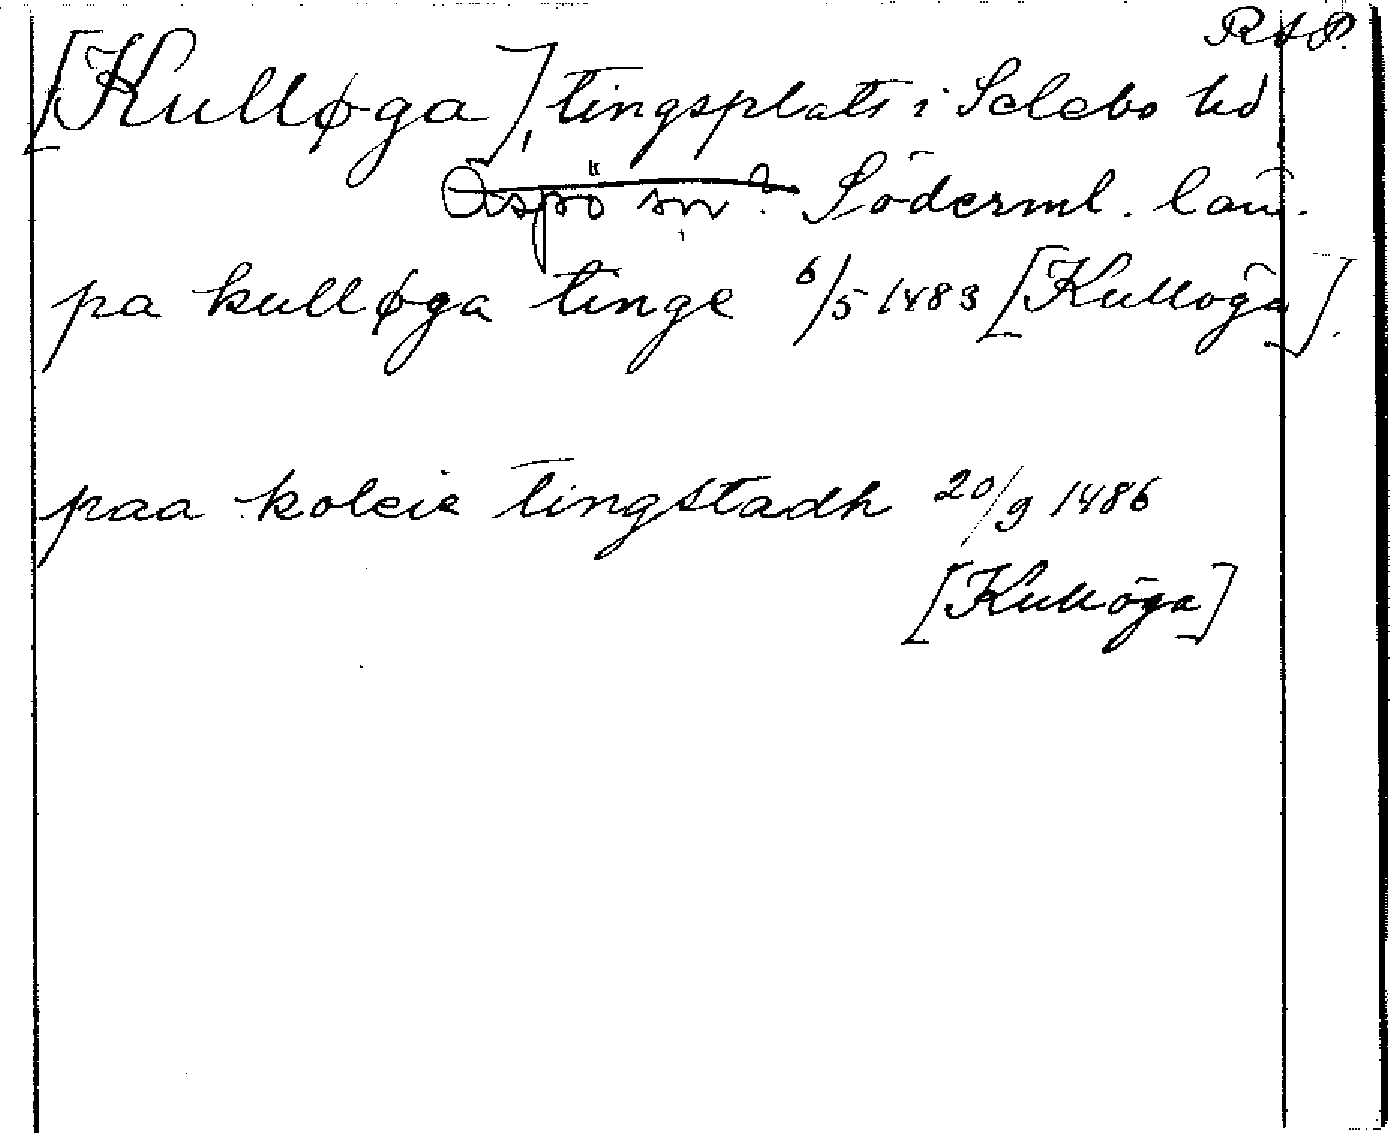 RAP.
[Kulløga], tingsplats i Selebo hd
Äspö sn? Söderml. län.
pa kulløga tinge 6/5 1483 [Kullöga].
paa koleie tingstadh 20/9 1486
[Kullöga]